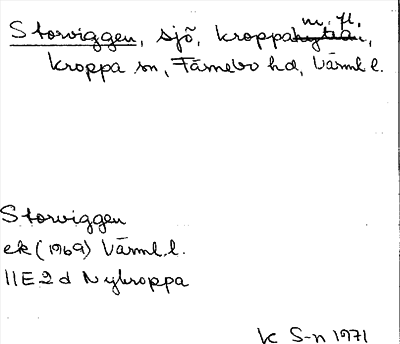 Storviggen, sjö, kroppa m. fl.,
Kroppa sn, Färnebo hd, Värml l.
Storviggen
ek (1969) Värml. l.
11E 2 d Nykroppa
K S-n 1971